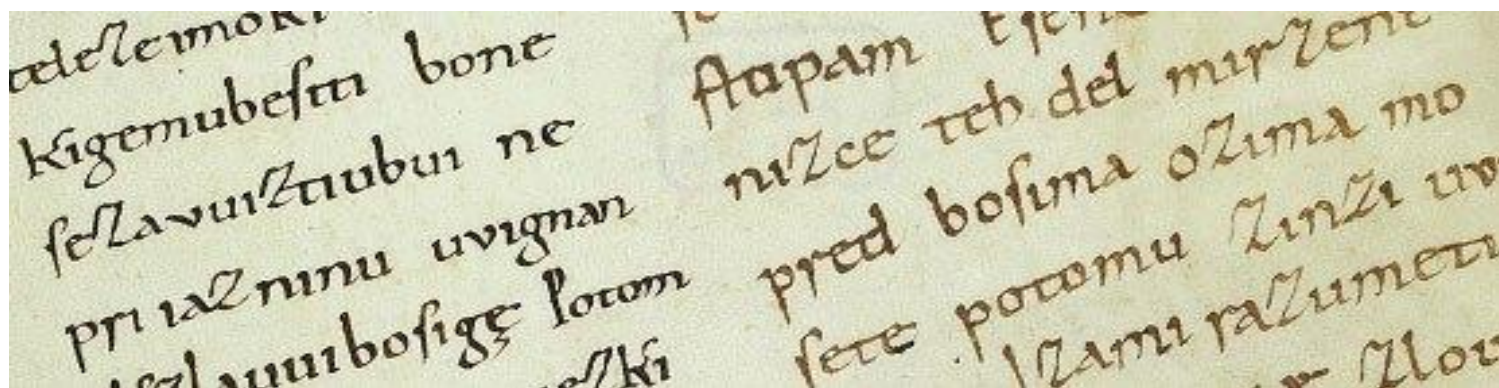 teleſzeimoki
kigemubeſiti bone
ſeſzavuiztiubui ne
pri iazninu uvignan
ſzlauuiboſigę Potom
eſzki
ſtupam
niſzce teh del mirſzene
pred boſima oſzima mo
ſete potomu ſzinzi uv
ſzami raſzumeti
ſzlou